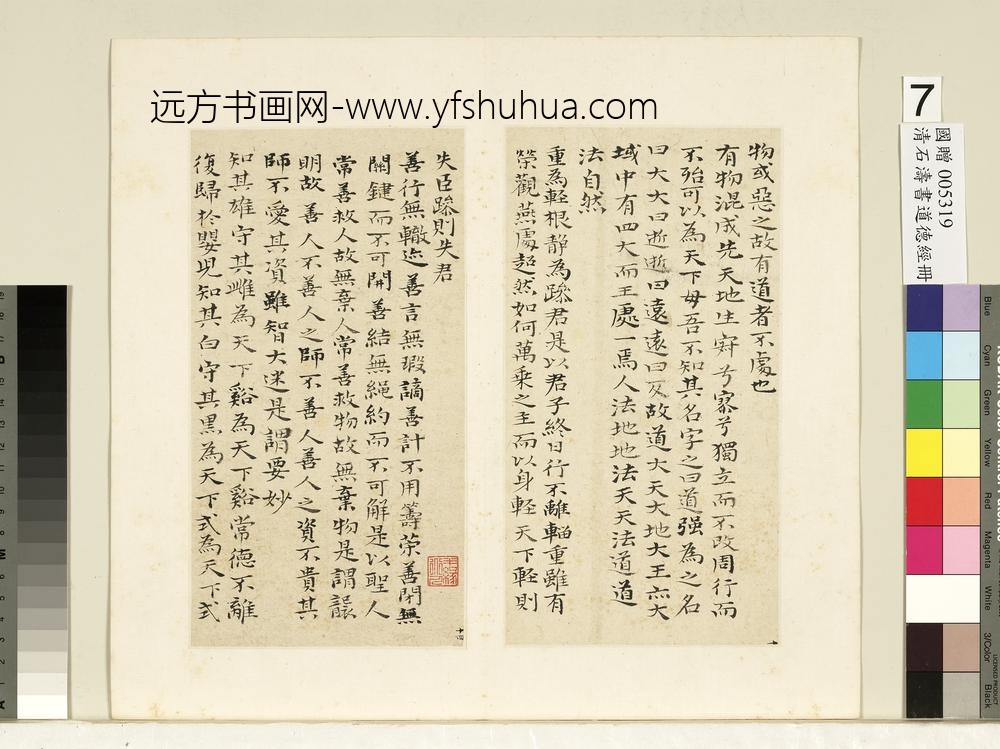 远方书画网-www.yfshuhua.com
物或惡之故有道者不處也
有物混成先天地生寂兮寥兮獨立而不改周行而
不殆可以為天下母吾不知其名字之曰道强為之名
曰大大曰逝逝曰遠遠曰反故道大天大地大王亦大
域中有四大而王處一焉人法地地法天天法道道
法自然
重為輕根静為躁君是以君子終日行不離輜重雖有
榮觀燕處超然如何萬乘之主而以身輕天下輕則
失臣躁則失君
善行無轍迹善言無瑕讁善計不用籌策善閉無
關鍵而不可開善結無繩約而不可解是以聖人
常善救人故無棄人常善救物故無棄物是謂襲
明故善人不善人之師不善人善人之資不貴其
師不愛其資雖智大迷是謂要妙
知其雄守其雌為天下谿為天下谿常德不離
復歸於嬰兒知其白守其黑為天下式為天下式
十四
7
國贈 005319
清石濤書道德經冊
Blue
Cyan
Green
Yellow
Red
Magenta
White
3/Color
Black